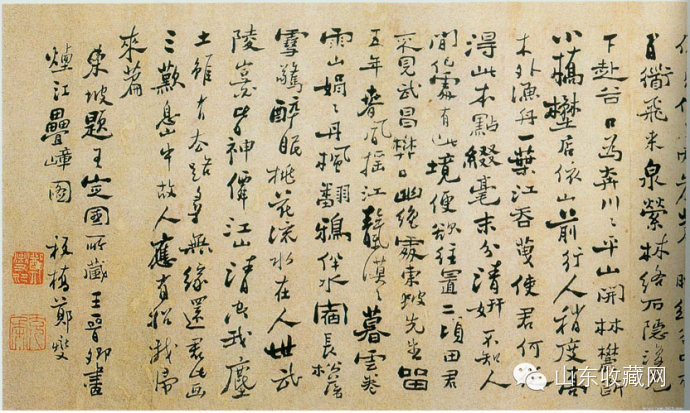 衜飛来泉縈林絡石隱
下赴谷口為奔川〻平山開林麓斷
小橋埜店依山前行人稍度喬
木外漁舟一葉江吞天使君何
得此本點綴毫末分清妍不知人
間何處有此境便欲往置二頃田君
不見武昌樊口幽絕處東坡先生留
五年春風搖江天漠〻暮雲卷
雨山娟〻丹楓翻鴉伴水宿長松落
雪驚醉眠桃花流水在人世武
陵豈皆神僊江山清空我塵
土雖有去路尋無緣還君此画
三歎息山中故人應有招我歸
來篇
東坡題王定國所藏王晉卿畫
煙江疊嶂圖 板橋鄭燮
山东收藏网